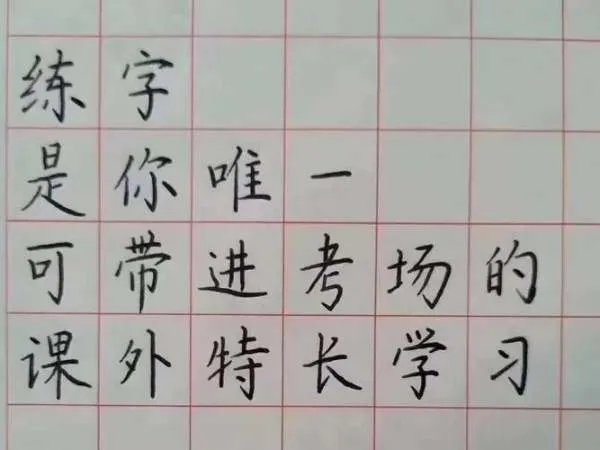 练字
是你唯一
可带进考场的
课外特长学习